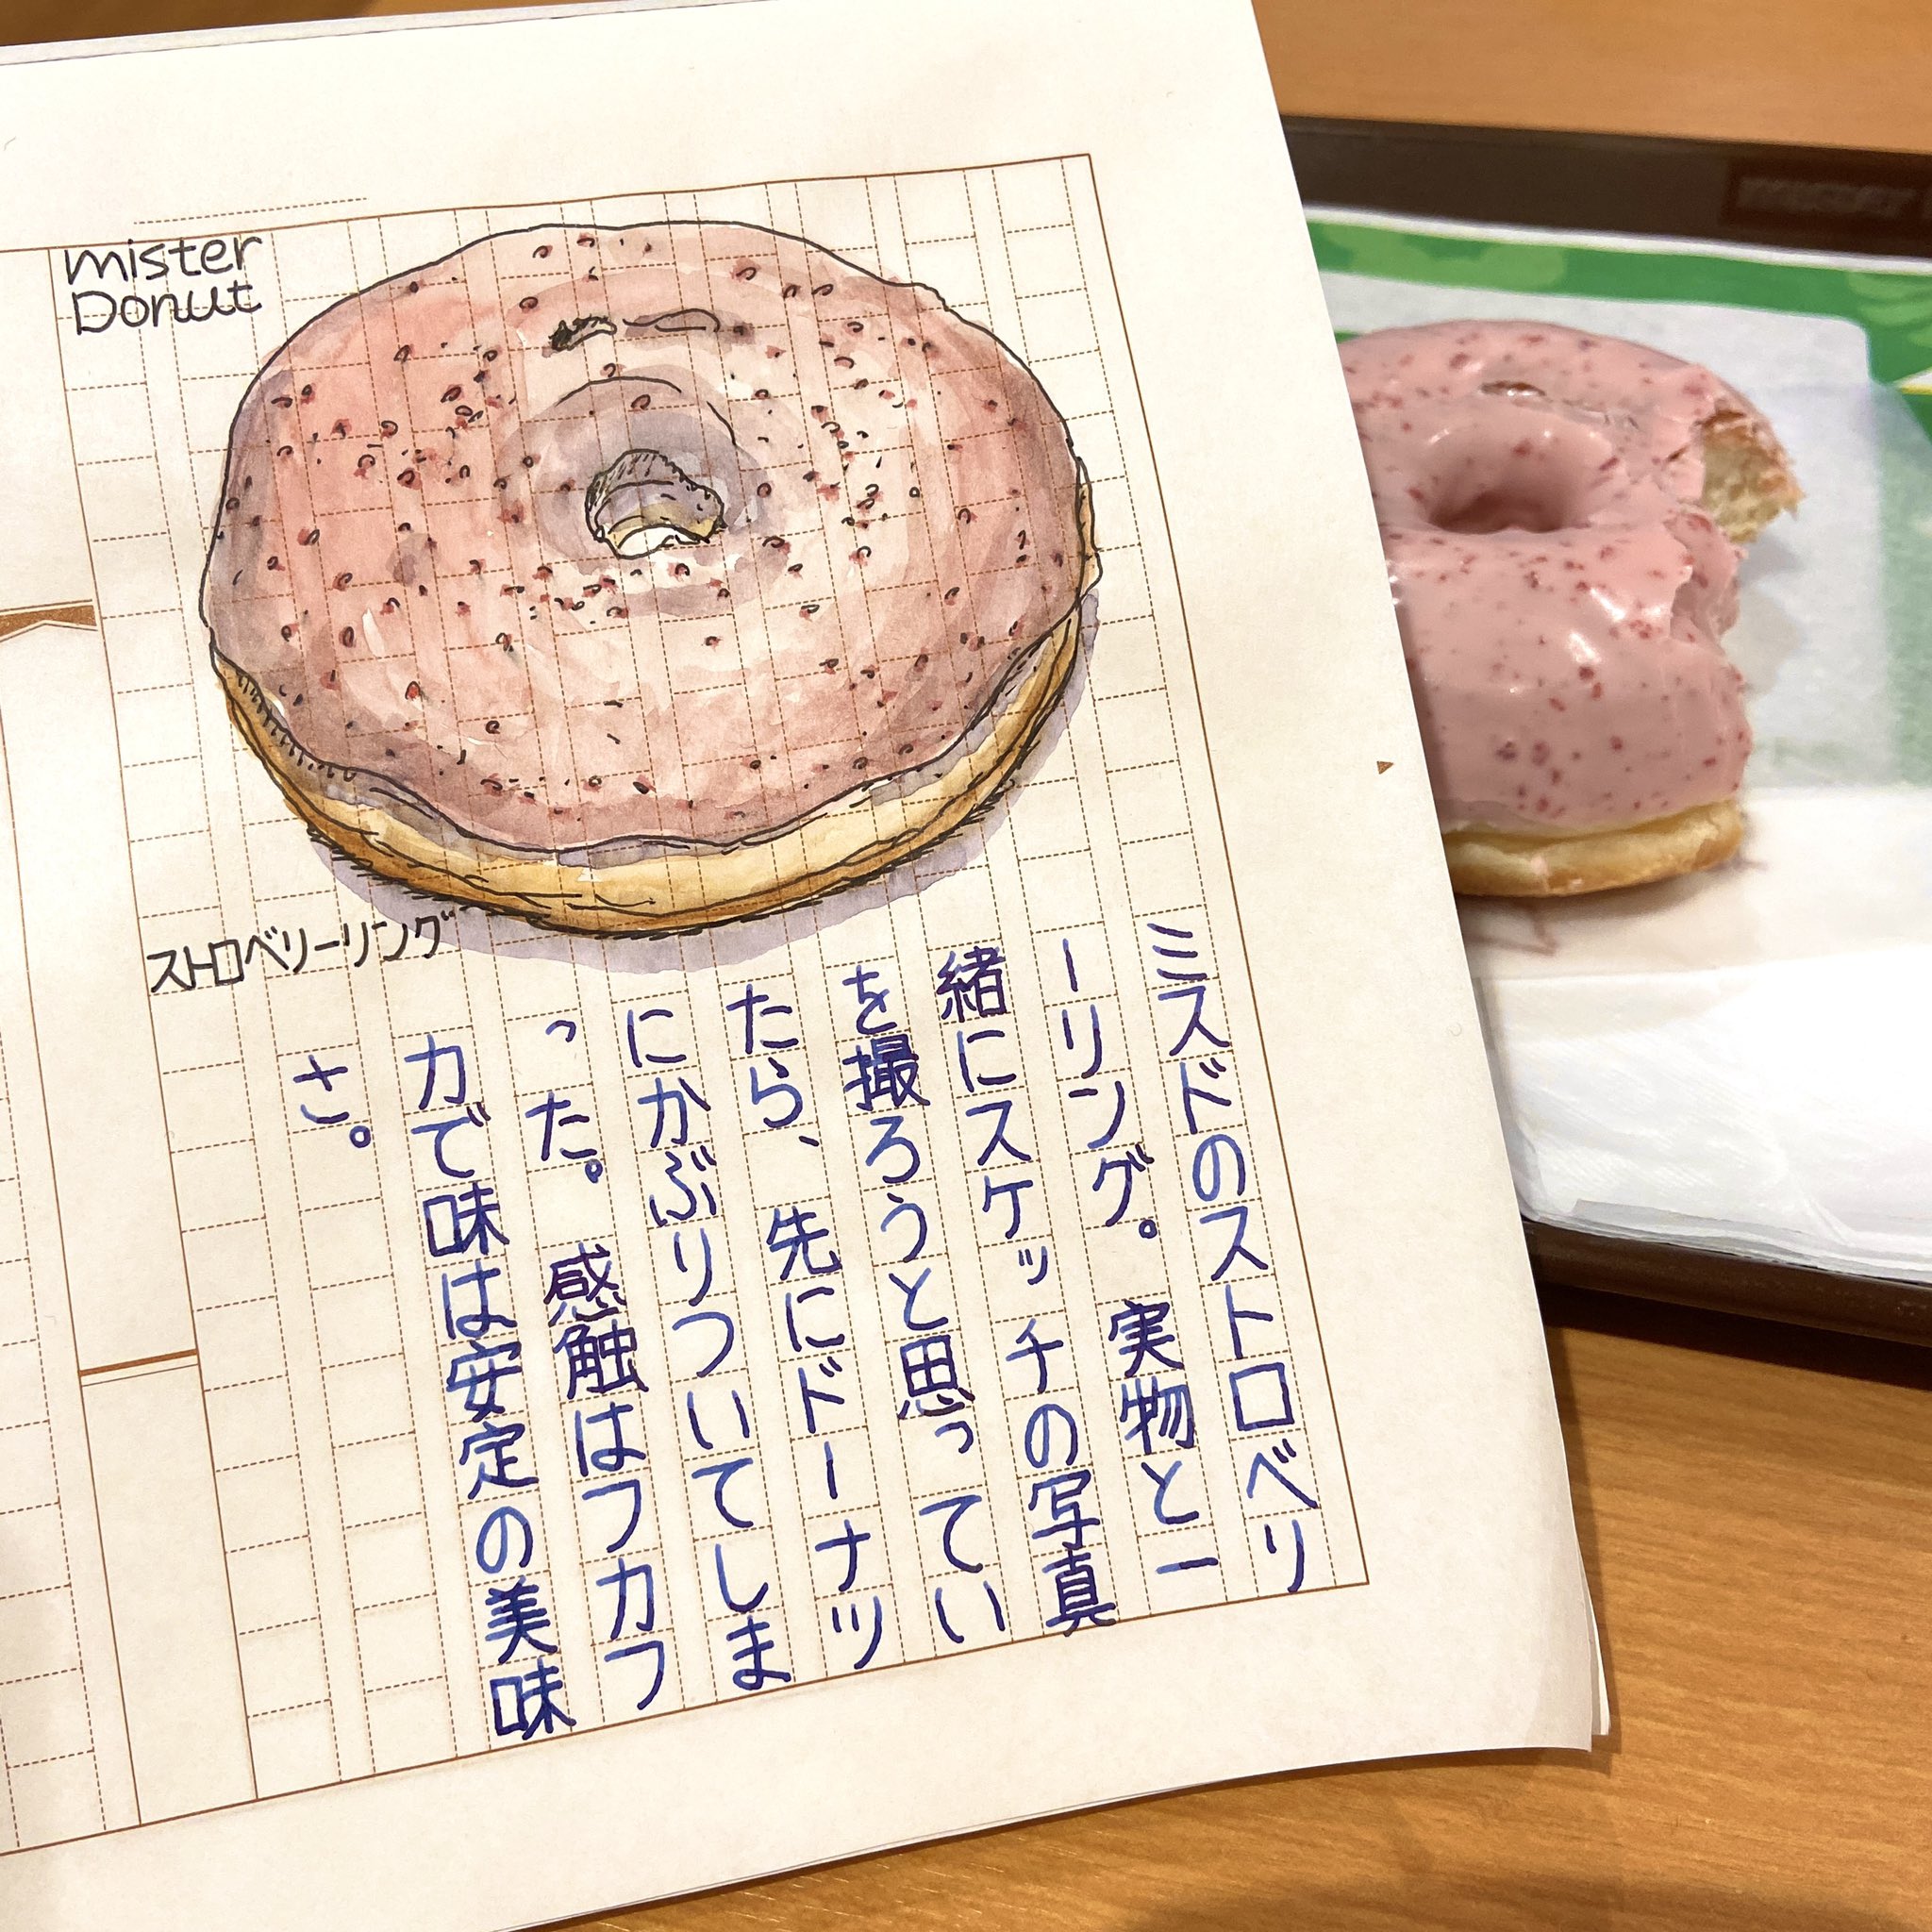 mister
Donut
ストロベリーリング
ミスドのストロベリ
ーリング。実物と一
緒にスケッチの写真
を撮ろうと思ってい
たら、先にドーナツ
にかぶりついてしま
った。感触はフカフ
カで味は安定の美味
さ。